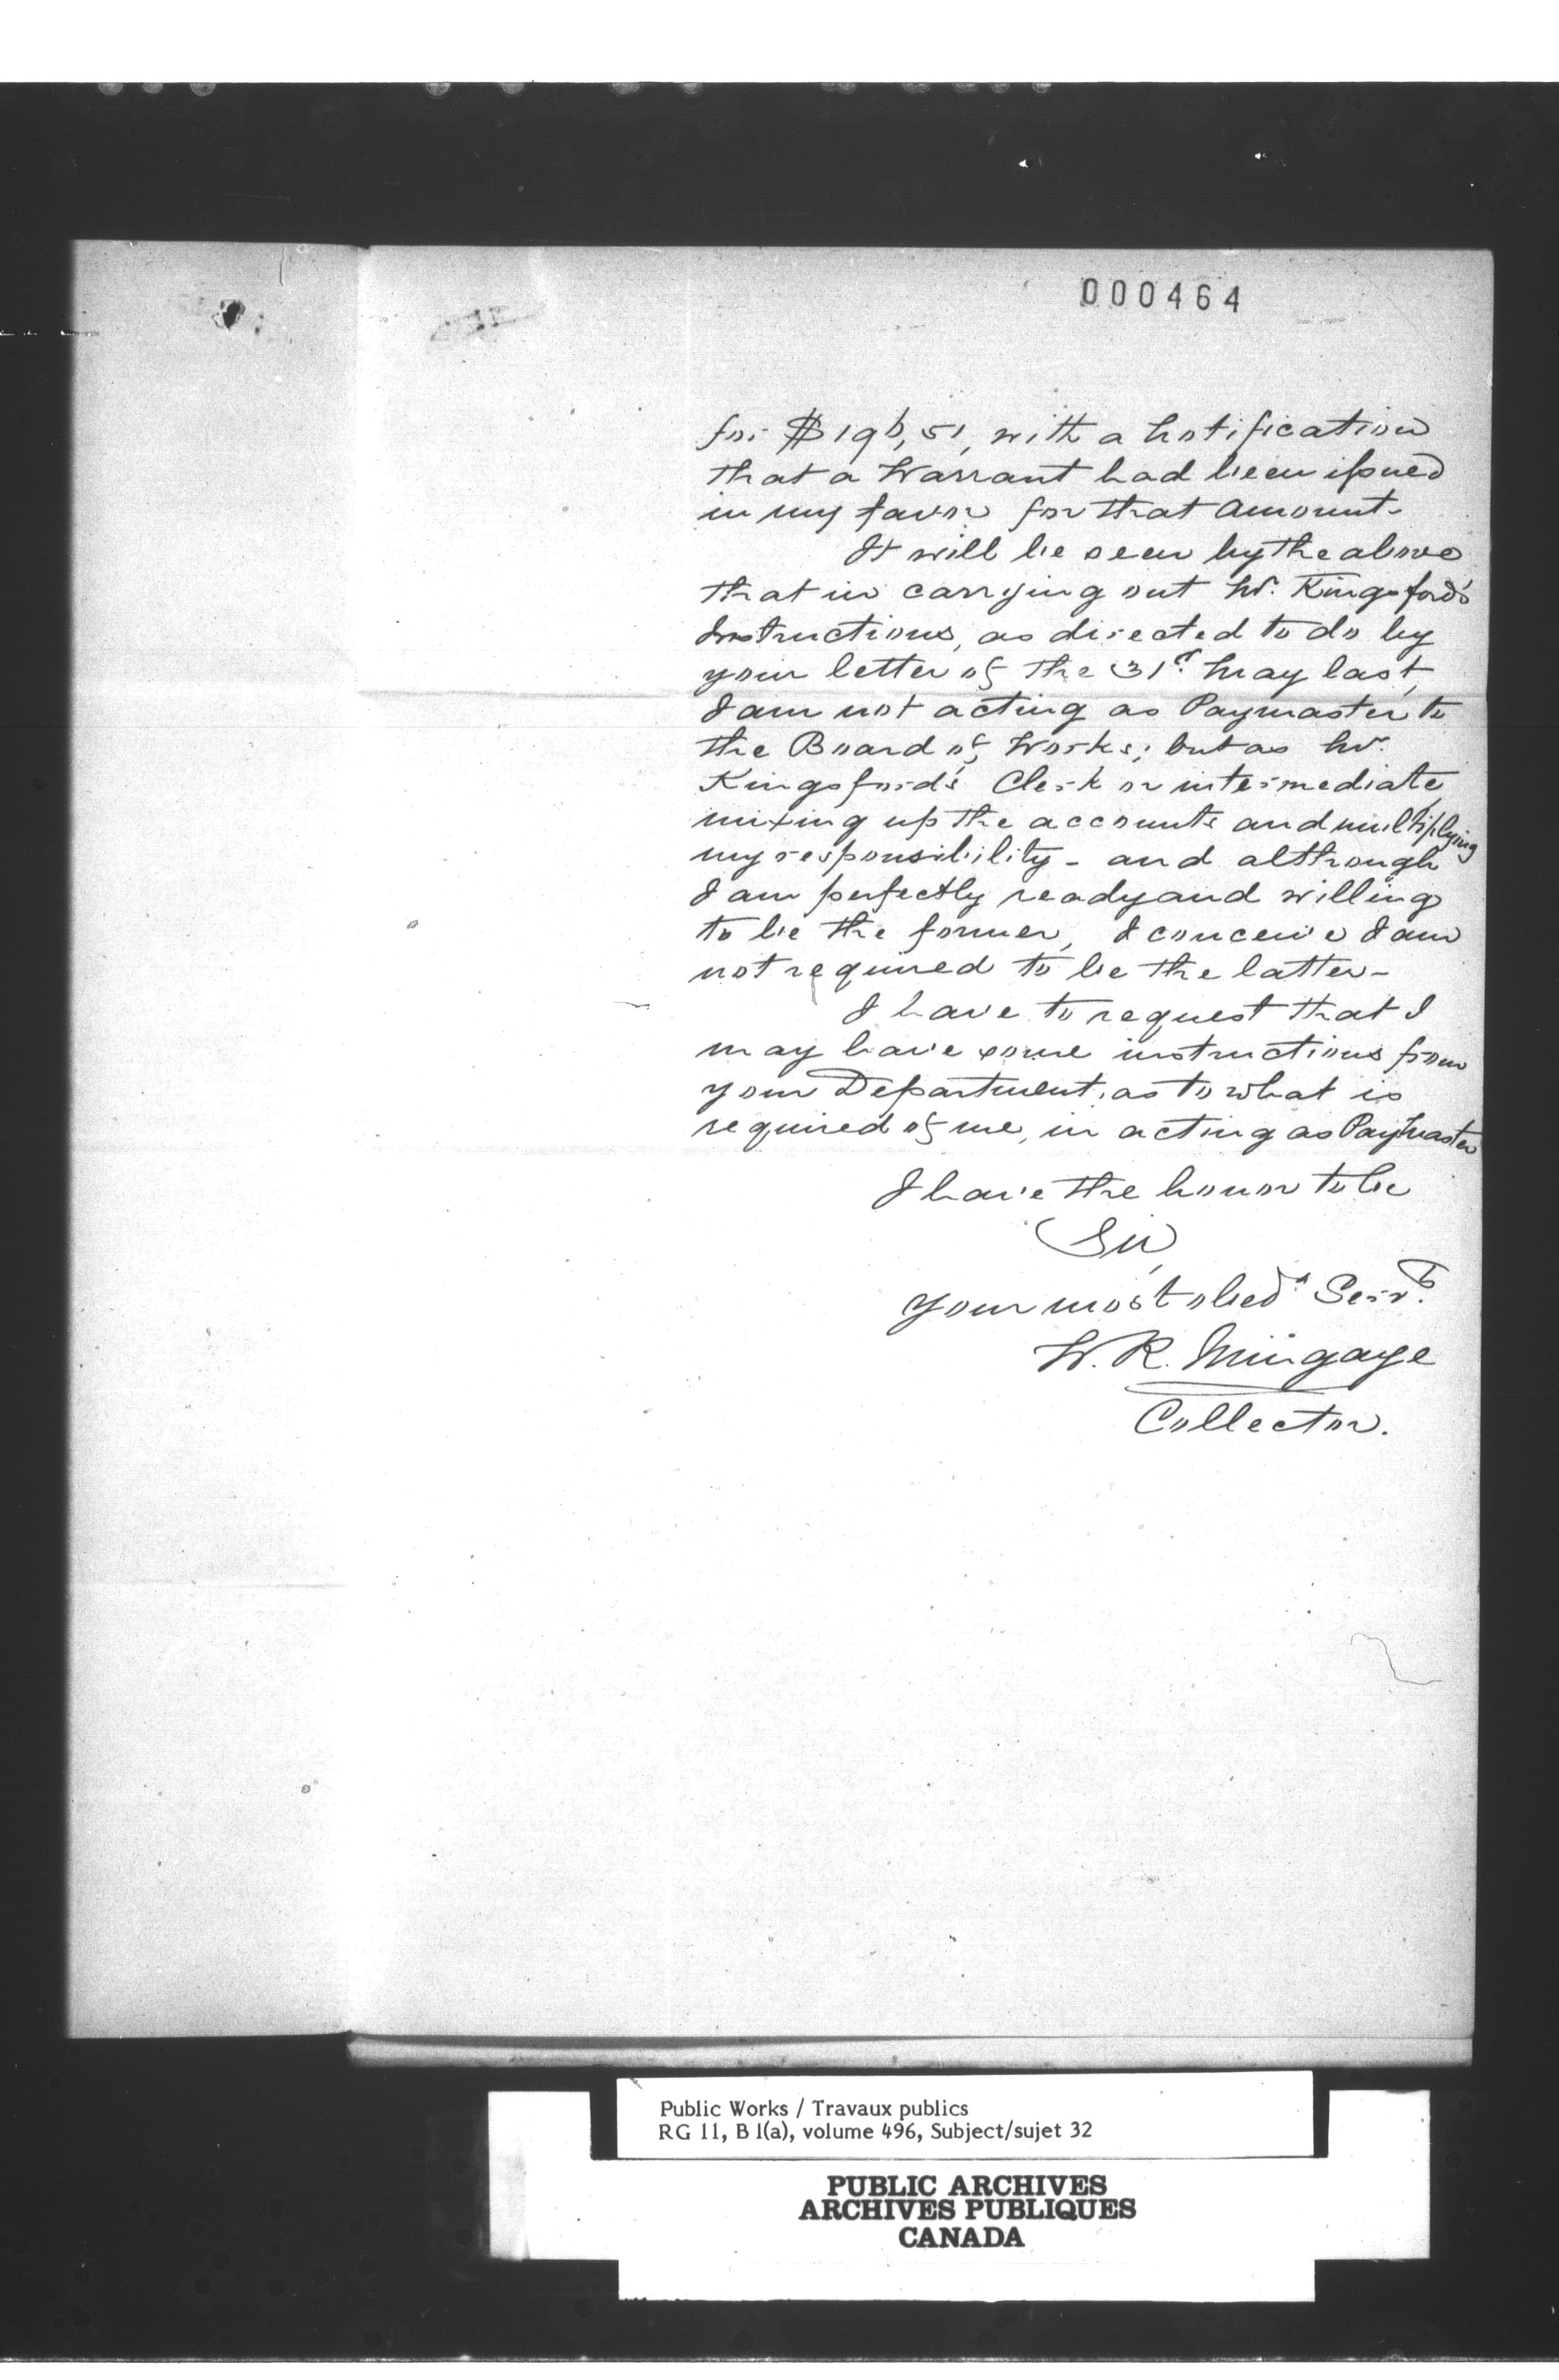 000464
for $196,51, with a Notification
that a Warrant had been issued
in my favor for that Amount-
It will be seen by the above
that in carrying out Mr. Kingsford's
Instructions, as directed to do by
your letter of the 31st. May last,
I am not acting as Paymaster to
the Board of Works; but as Mr.
Kingsford's Clerk or intermediate,
mixing up the accounts and multiplying
my responsibility - and although
I am perfectly ready and willing
to be the former, I conceive I am
not required to be the latter-
I have to request that I
may have some instructions from
your Department, as to what is
required of me, in acting as PayMaster
I have the honor to be
Sir,
Your most obedt. Servt.
W. R. Mingaye
Collector.
Public Works / Travaux publics
RG 11, B 1(a), volume 496, Subject/sujet 32
PUBLIC ARCHIVES
ARCHIVES PUBLIQUES
CANADA